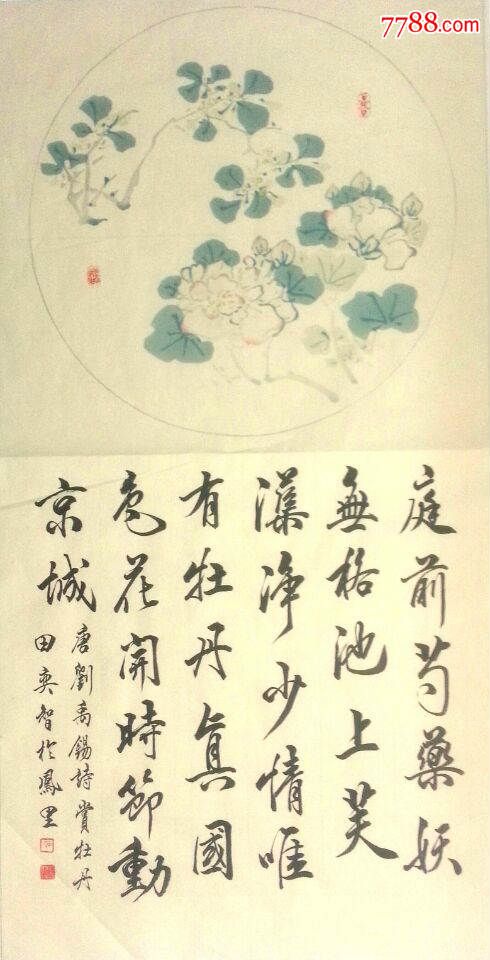 7788.com
庭前芍藥妖
無格池上芙
蕖净少情唯
有牡丹真國
色花開時節動
京城
唐劉禹錫詩賞牡丹
田奕智於鳳里